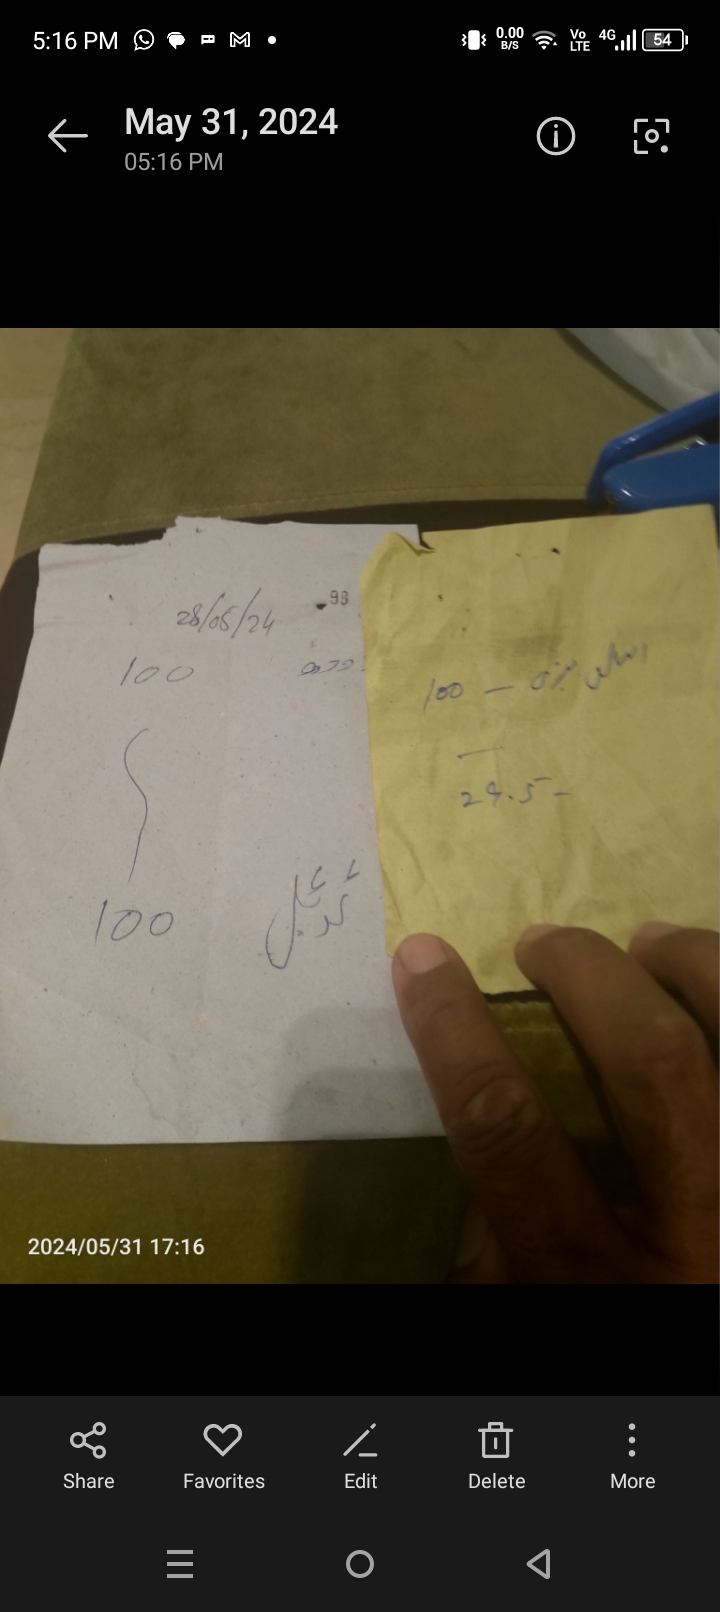 5:16 PM 0.00 B/S Vo LTE 4G 54
May 31, 2024
05:16 PM
98
28/05/24
100
100
100 —
29.5 -
2024/05/31 17:16
Share Favorites Edit Delete More